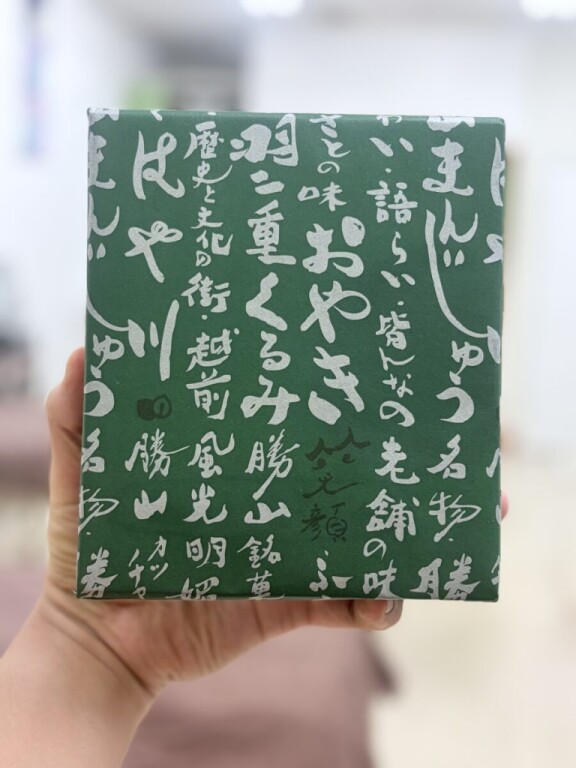 まんじゅう 名物・勝
わい・語らい・皆んなの老舗の味
さとの味 おやき 笑顔・ふ
羽二重くるみ 勝山銘菓
・歴史と文化の街・越前 風光明媚
はや川 勝山
まんじゅう 名物・勝